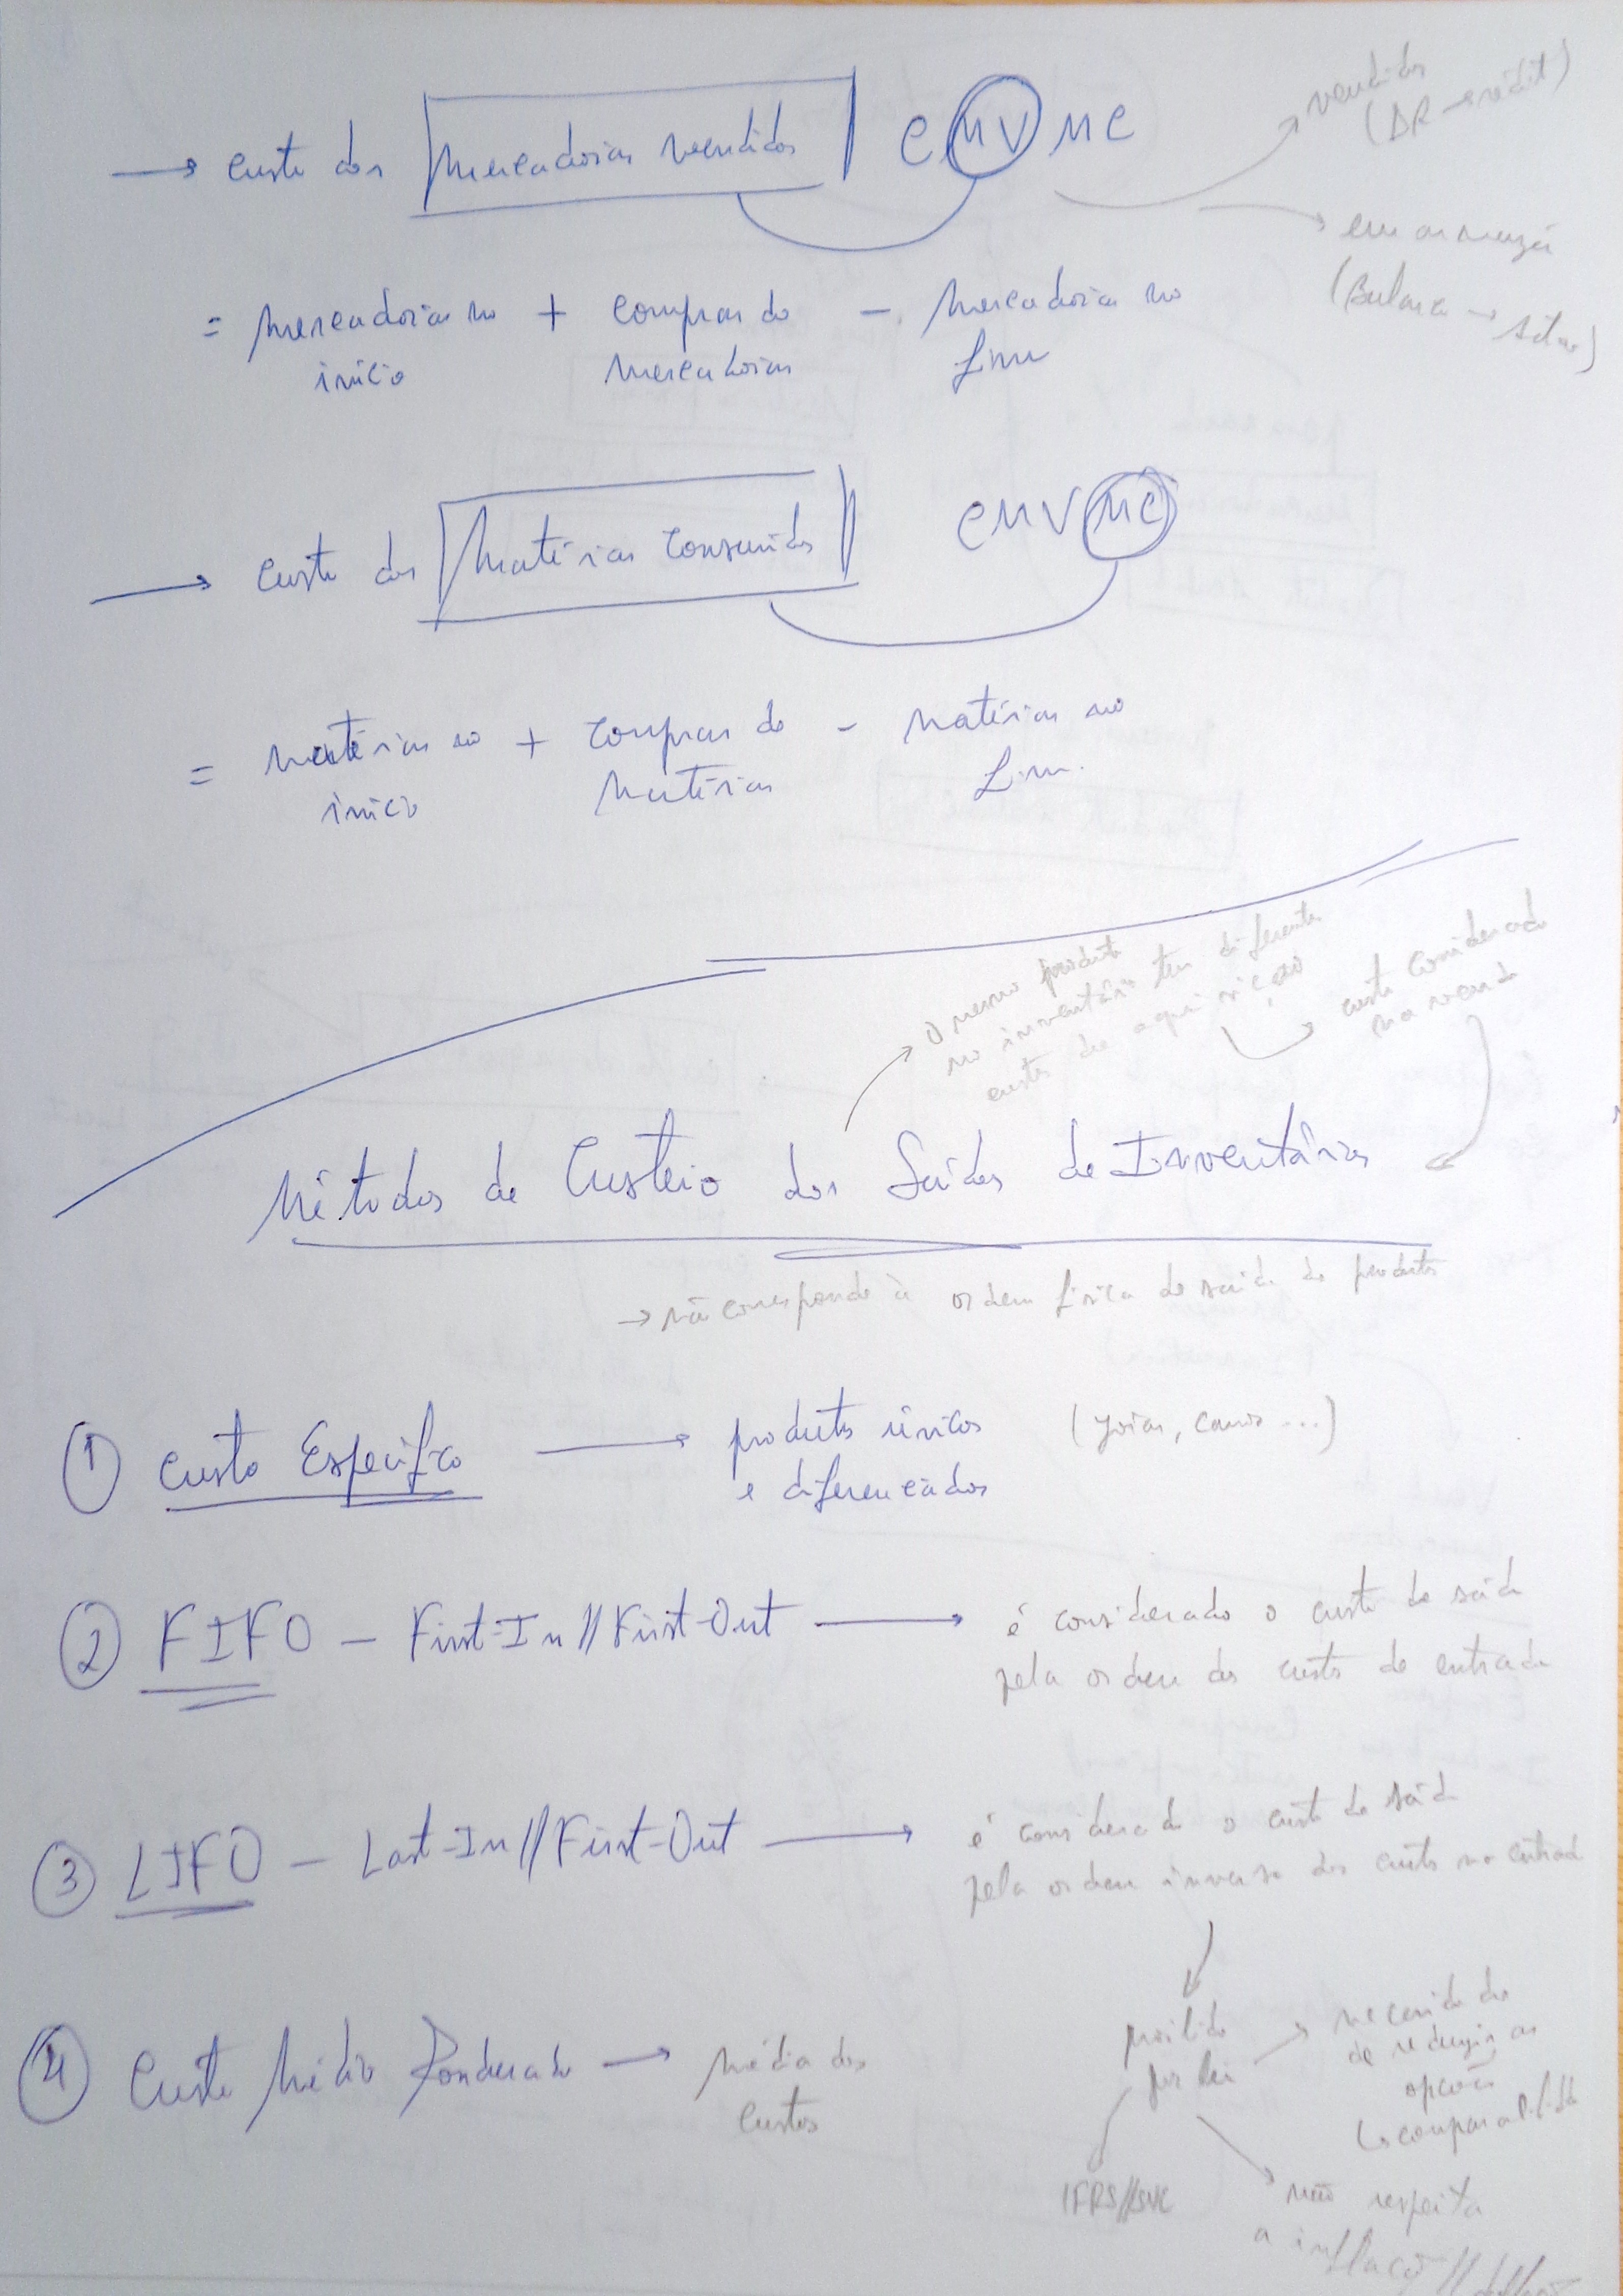 → custo das mercadorias vendidas CMVMC
→ vendidos
(DR → crédit)
→ em armazém
(Balanço → Ativo)
= mercadorias no + compras de - mercadorias no
início mercadorias fim
→ custo das matérias consumidas CMVMC
= matérias no + compras de - matérias no
início matérias fim.
O mesmo produto
no inventário tem diferentes
custos de aquisição
custo considerado
na venda
Métodos de Custeio das Saídas de Inventários
→ não corresponde à ordem física de saída de produtos
① Custo Específico → produtos únicos (joias, carros ...)
e diferenciados
② FIFO - First-In//First-Out → é considerado o custo de saída
pela ordem dos custos de entrada
③ LIFO - Last-In//First-Out → é considerado o custo de saída
pela ordem inversa dos custos na entrada
proibido
por lei
→ necessidade
de reduzir as
opções
↳ comparabilidade
IFRS//SNC
não respeita
a inflação//deflação
④ Custo Médio Ponderado → média dos
custos